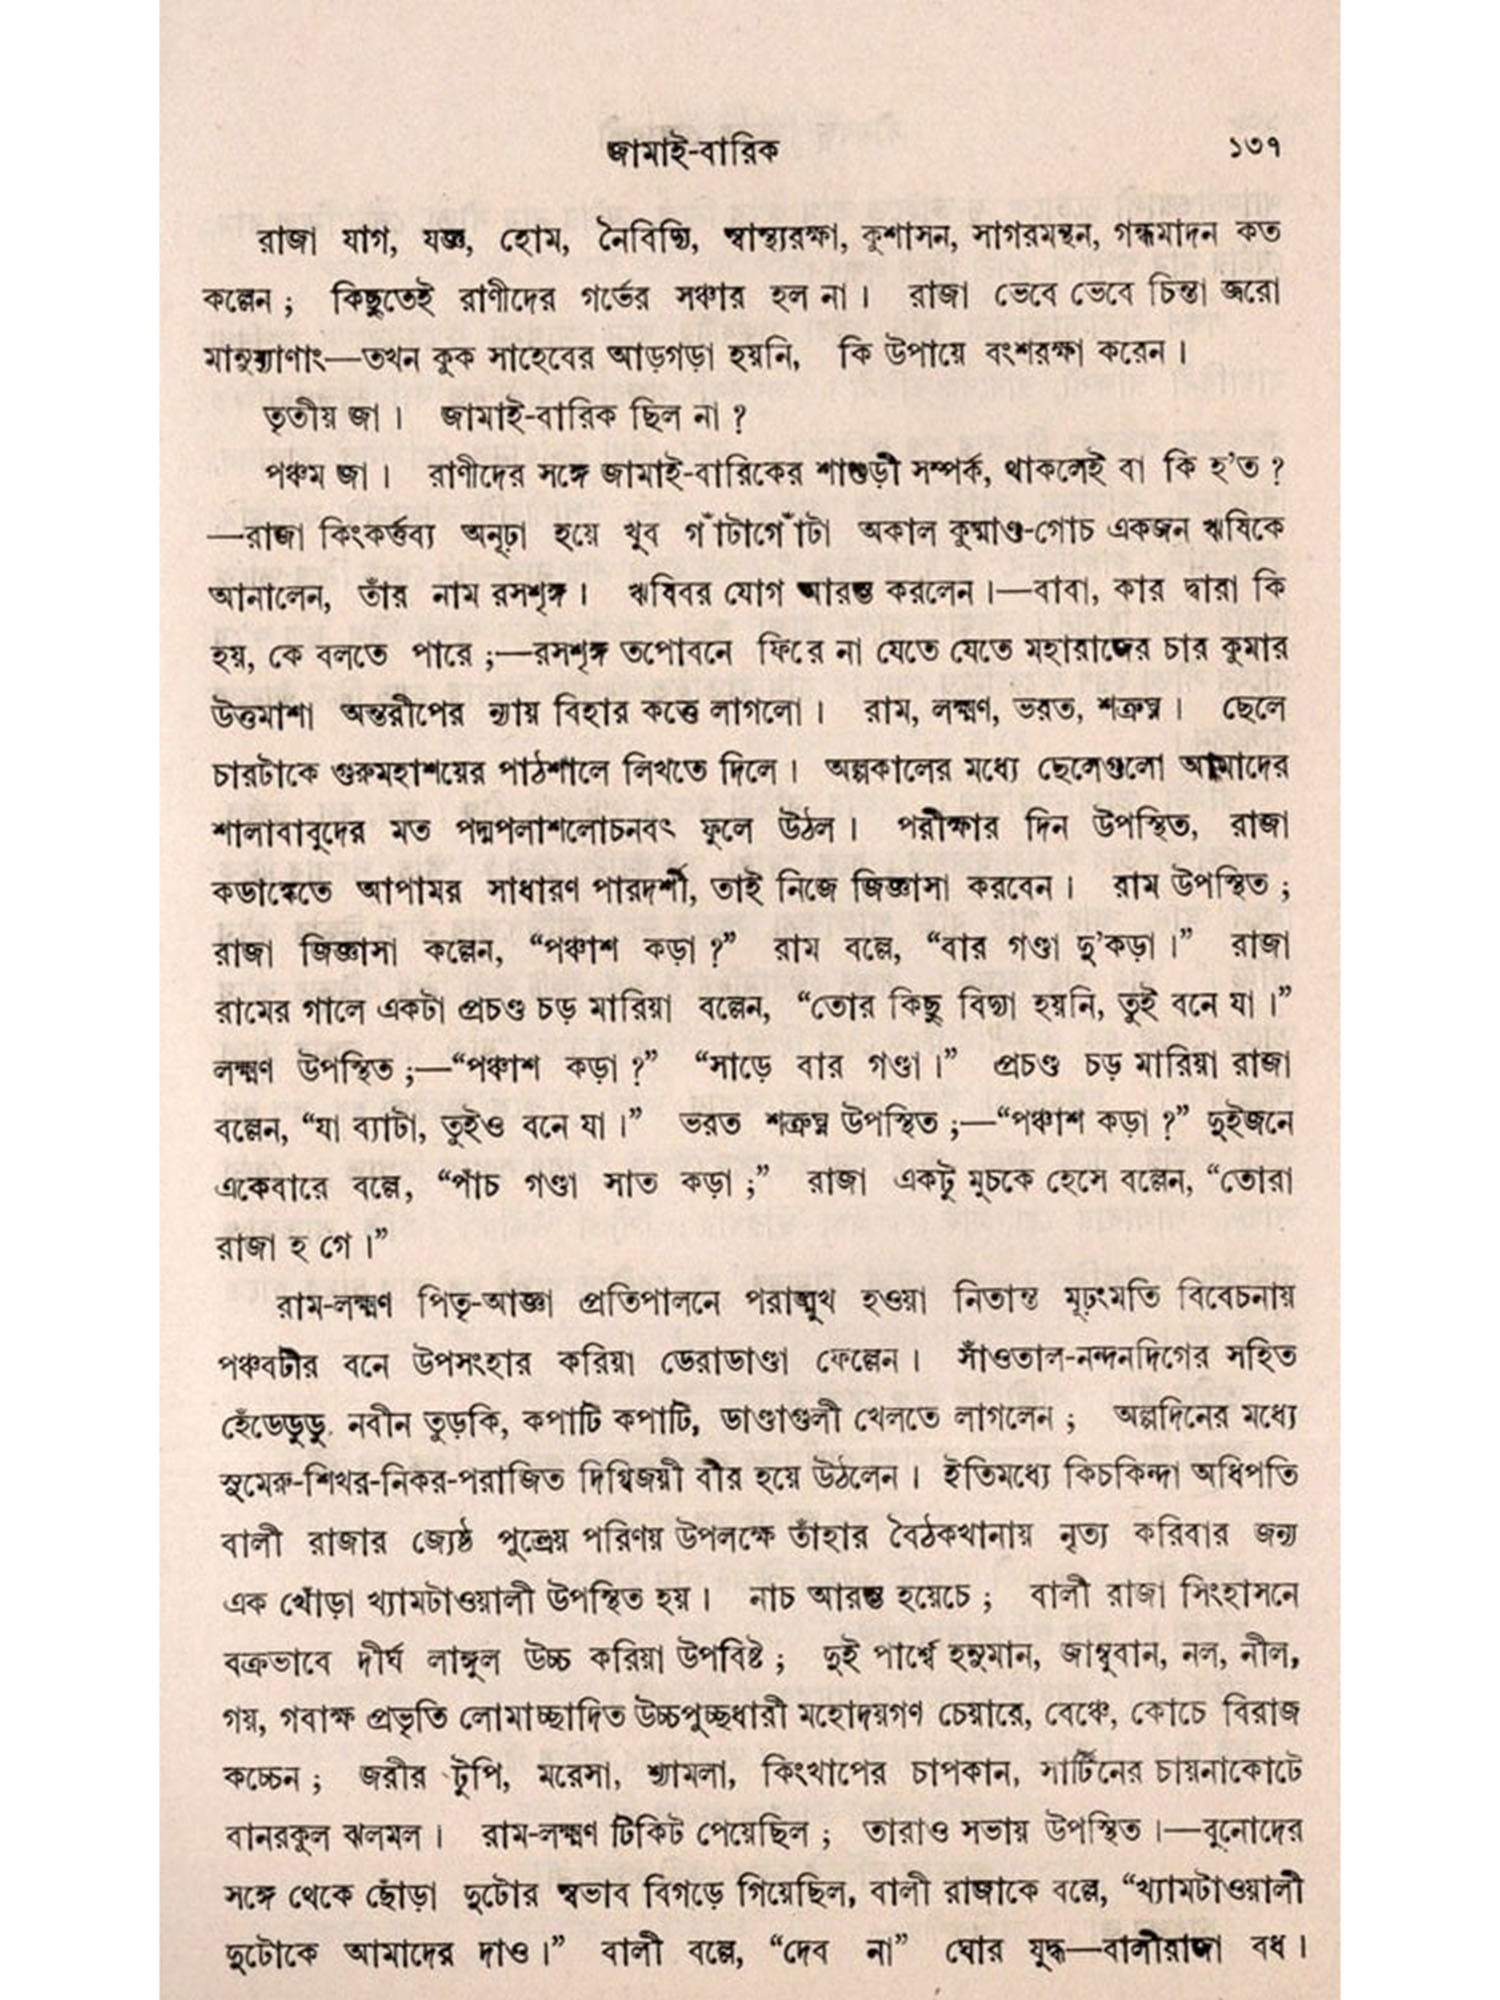 জামাই-বারিক ১৩৭
রাজা যাগ, যজ্ঞ, হোম, নৈবিদ্যি, স্বাস্থ্যরক্ষা, কুশাসন, সাগরমন্থন, গন্ধমাদন কত
কল্লেন ; কিছুতেই রাণীদের গর্ভের সঞ্চার হল না। রাজা ভেবে ভেবে চিন্তা জ্বরো
মানুষ্যাণাং—তখন কুক সাহেবের আড়গড়া হয়নি, কি উপায়ে বংশরক্ষা করেন।
তৃতীয় জা। জামাই-বারিক ছিল না ?
পঞ্চম জা। রাণীদের সঙ্গে জামাই-বারিকের শাশুড়ী সম্পর্ক, থাকলেই বা কি হ’ত ?
—রাজা কিংকর্ত্তব্য অনূঢ়া হয়ে খুব গাঁটাগোঁটা অকাল কুষ্মাণ্ড-গোচ একজন ঋষিকে
আনালেন, তাঁর নাম রসশৃঙ্গ। ঋষিবর যোগ আরম্ভ করলেন।—বাবা, কার দ্বারা কি
হয়, কে বলতে পারে ;—রসশৃঙ্গ তপোবনে ফিরে না যেতে যেতে মহারাজের চার কুমার
উত্তমাশা অন্তরীপের ন্যায় বিহার কত্তে লাগলো। রাম, লক্ষ্মণ, ভরত, শত্রুঘ্ন। ছেলে
চারটাকে গুরুমহাশয়ের পাঠশালে লিখতে দিলে। অল্পকালের মধ্যে ছেলেগুলো আমাদের
শালাবাবুদের মত পদ্মপলাশলোচনবৎ ফুলে উঠল। পরীক্ষার দিন উপস্থিত, রাজা
কড়াঙ্কেতে আপামর সাধারণ পারদর্শী, তাই নিজে জিজ্ঞাসা করবেন। রাম উপস্থিত ;
রাজা জিজ্ঞাসা কল্লেন, “পঞ্চাশ কড়া ?” রাম বল্লে, “বার গণ্ডা দু’কড়া।” রাজা
রামের গালে একটা প্রচণ্ড চড় মারিয়া বল্লেন, “তোর কিছু বিদ্যা হয়নি, তুই বনে যা।”
লক্ষ্মণ উপস্থিত ;—“পঞ্চাশ কড়া ?” “সাড়ে বার গণ্ডা।” প্রচণ্ড চড় মারিয়া রাজা
বল্লেন, “যা ব্যাটা, তুইও বনে যা।” ভরত শত্রুঘ্ন উপস্থিত ;—“পঞ্চাশ কড়া ?” দুইজনে
একেবারে বল্লে, “পাঁচ গণ্ডা সাত কড়া ;” রাজা একটু মুচকে হেসে বল্লেন, “তোরা
রাজা হ গে।”
রাম-লক্ষ্মণ পিতৃ-আজ্ঞা প্রতিপালনে পরাঙ্মুখ হওয়া নিতান্ত মূঢ়ংমতি বিবেচনায়
পঞ্চবটীর বনে উপসংহার করিয়া ডেরাডাণ্ডা ফেল্লেন। সাঁওতাল-নন্দনদিগের সহিত
হেঁডেডুডু, নবীন তুড়কি, কপাটি কপাটি, ডাণ্ডাগুলী খেলতে লাগলেন ; অল্পদিনের মধ্যে
সুমেরু-শিখর-নিকর-পরাজিত দিগ্বিজয়ী বীর হয়ে উঠলেন। ইতিমধ্যে কিচকিন্দা অধিপতি
বালী রাজার জ্যেষ্ঠ পুত্ত্রের পরিণয় উপলক্ষে তাঁহার বৈঠকখানায় নৃত্য করিবার জন্য
এক খোঁড়া খ্যামটাওয়ালী উপস্থিত হয়। নাচ আরম্ভ হয়েচে ; বালী রাজা সিংহাসনে
বক্রভাবে দীর্ঘ লাঙ্গুল উচ্চ করিয়া উপবিষ্ট ; দুই পার্শ্বে হনুমান, জাম্বুবান, নল, নীল,
গয়, গবাক্ষ প্রভৃতি লোমাচ্ছাদিত উচ্চপুচ্ছধারী মহোদয়গণ চেয়ারে, বেঞ্চে, কোচে বিরাজ
কচ্চেন ; জরীর টুপি, মরেসা, শ্যামলা, কিংখাপের চাপকান, সার্টিনের চায়নাকোটে
বানরকুল ঝলমল। রাম-লক্ষ্মণ টিকিট পেয়েছিল ; তারাও সভায় উপস্থিত।—বুনোদের
সঙ্গে থেকে ছোঁড়া দুটোর স্বভাব বিগড়ে গিয়েছিল, বালী রাজাকে বল্লে, “খ্যামটাওয়ালী
দুটোকে আমাদের দাও।” বালী বল্লে, “দেব না” ঘোর যুদ্ধ—বালীরাজা বধ।